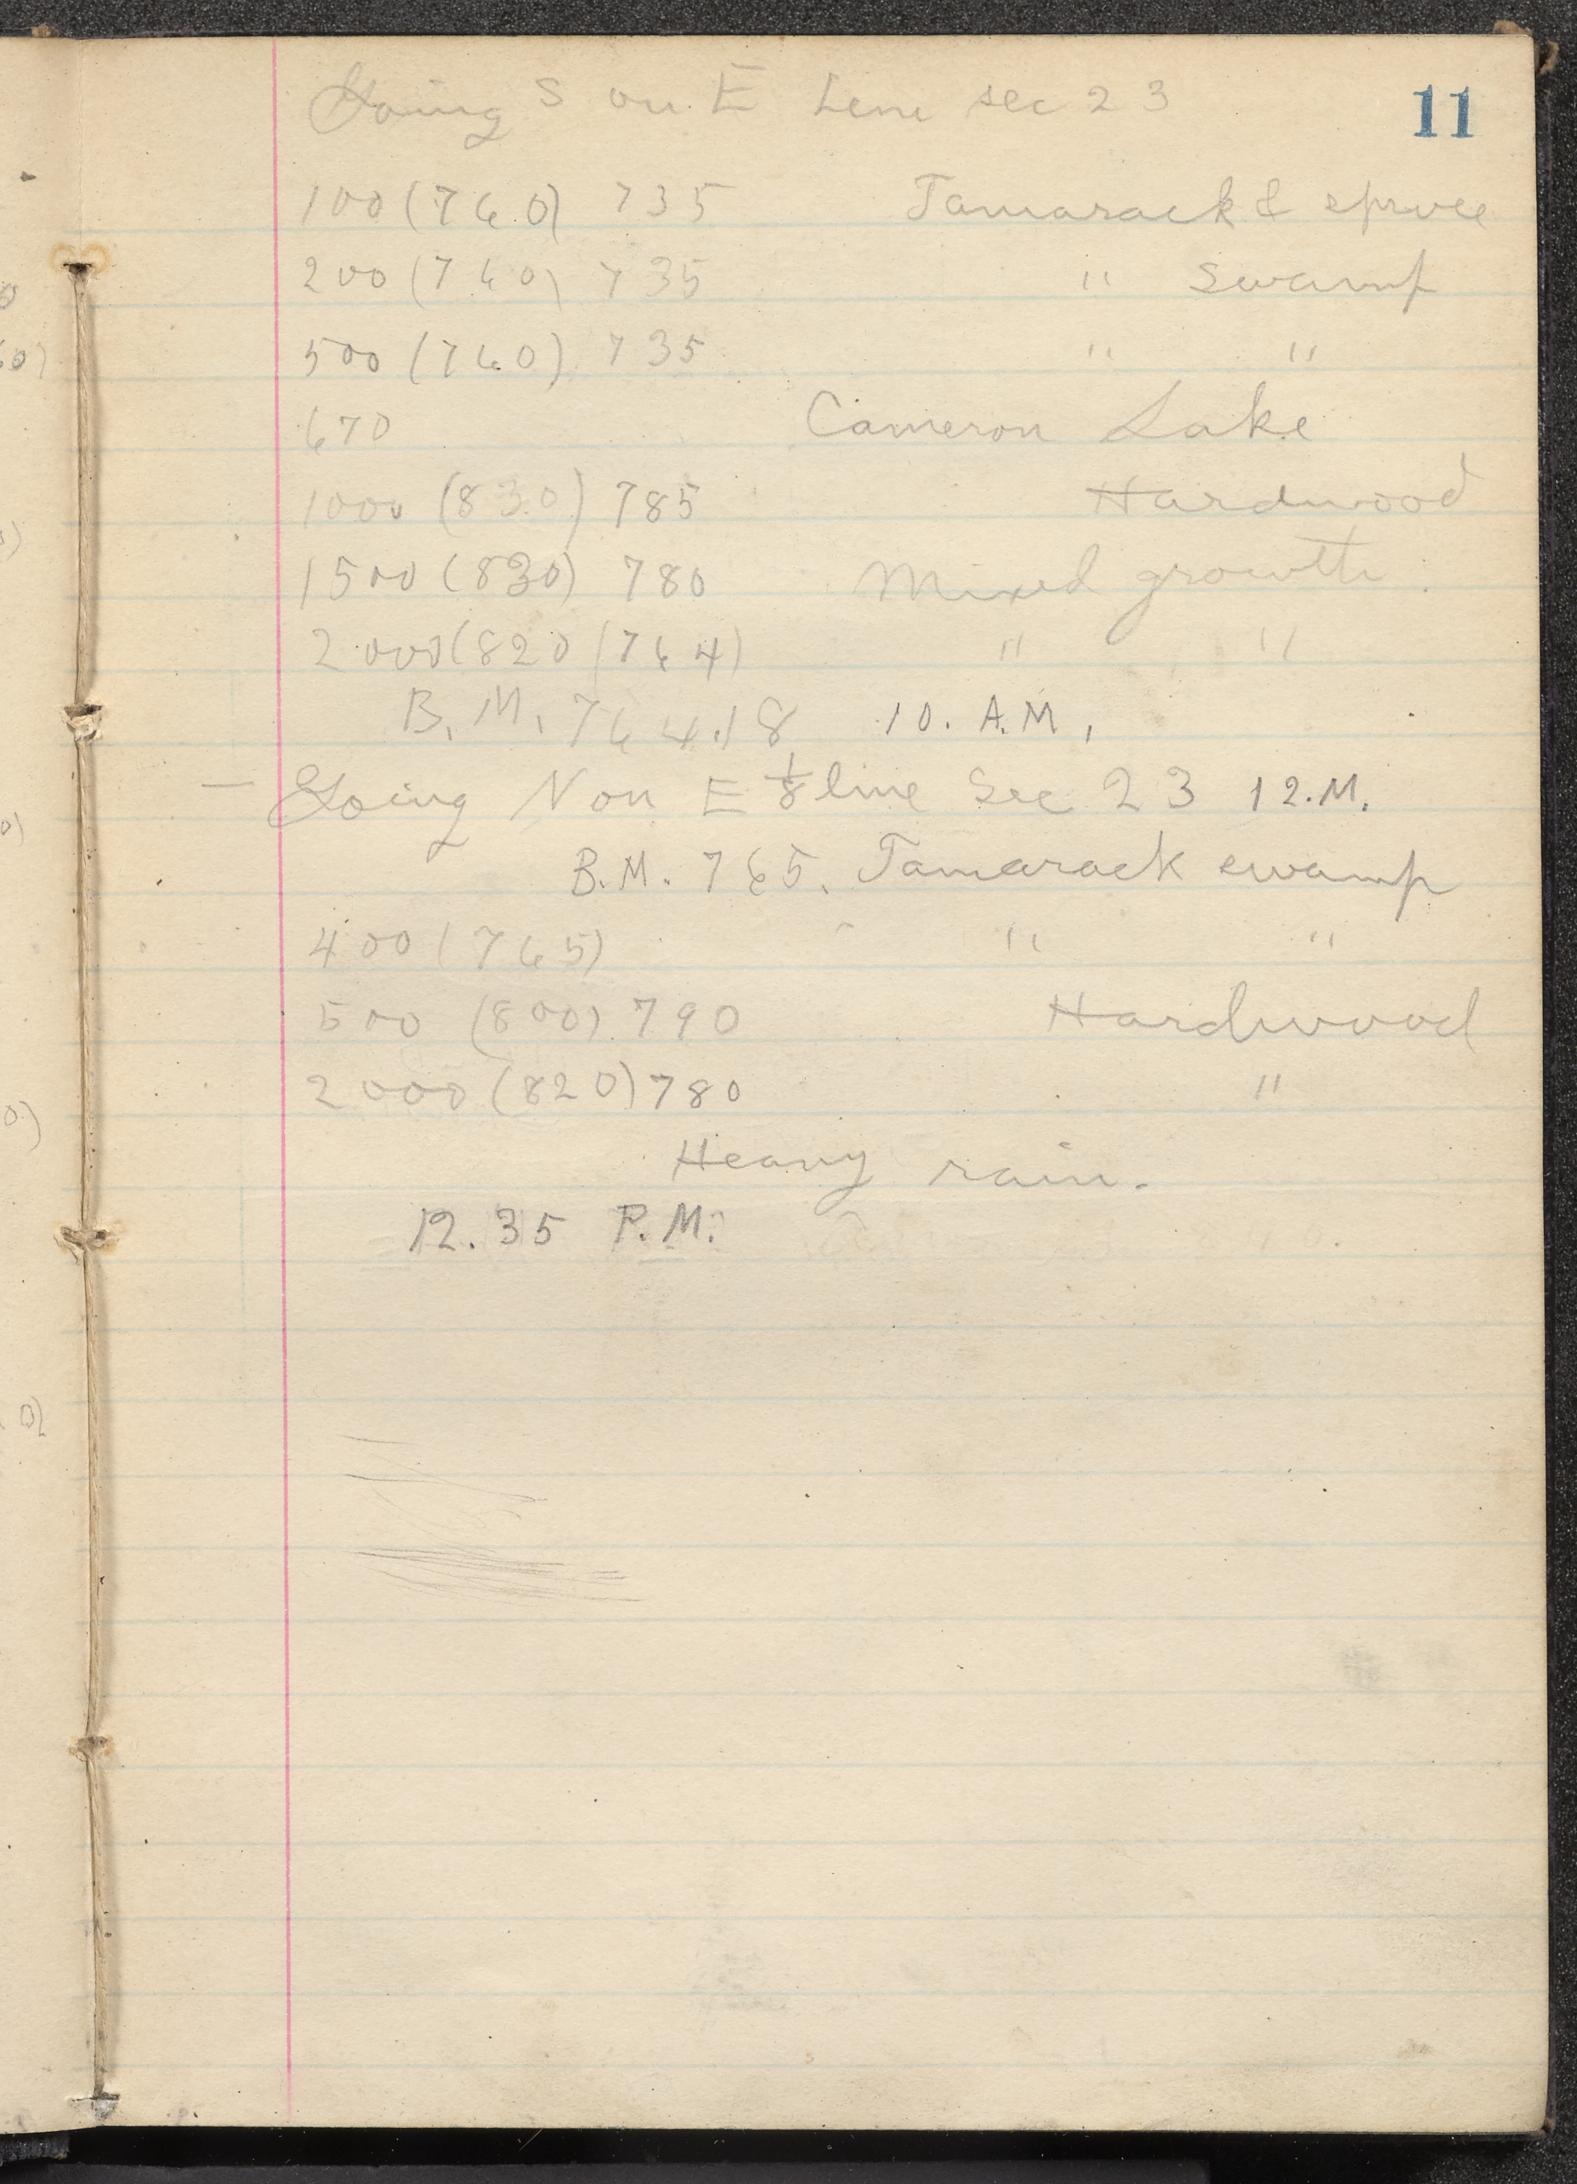 11
Going S on E Line sec 23
100 (760) 735 Tamarack & spruce
200 (760) 735 " swamp
500 (760) 735 " "
670 Cameron Lake
1000 (830) 785 Hardwood
1500 (830) 780 Mixed growth.
2000 (820 (764) " "
B.M. 764.18 10. A.M.
— Going N on E 1/8 line Sec 23 12.M.
B.M. 765. Tamarack swamp
400 (765) " "
500 (800) 790 Hardwood
2000 (820) 780 "
Heavy rain.
12.35 P.M.